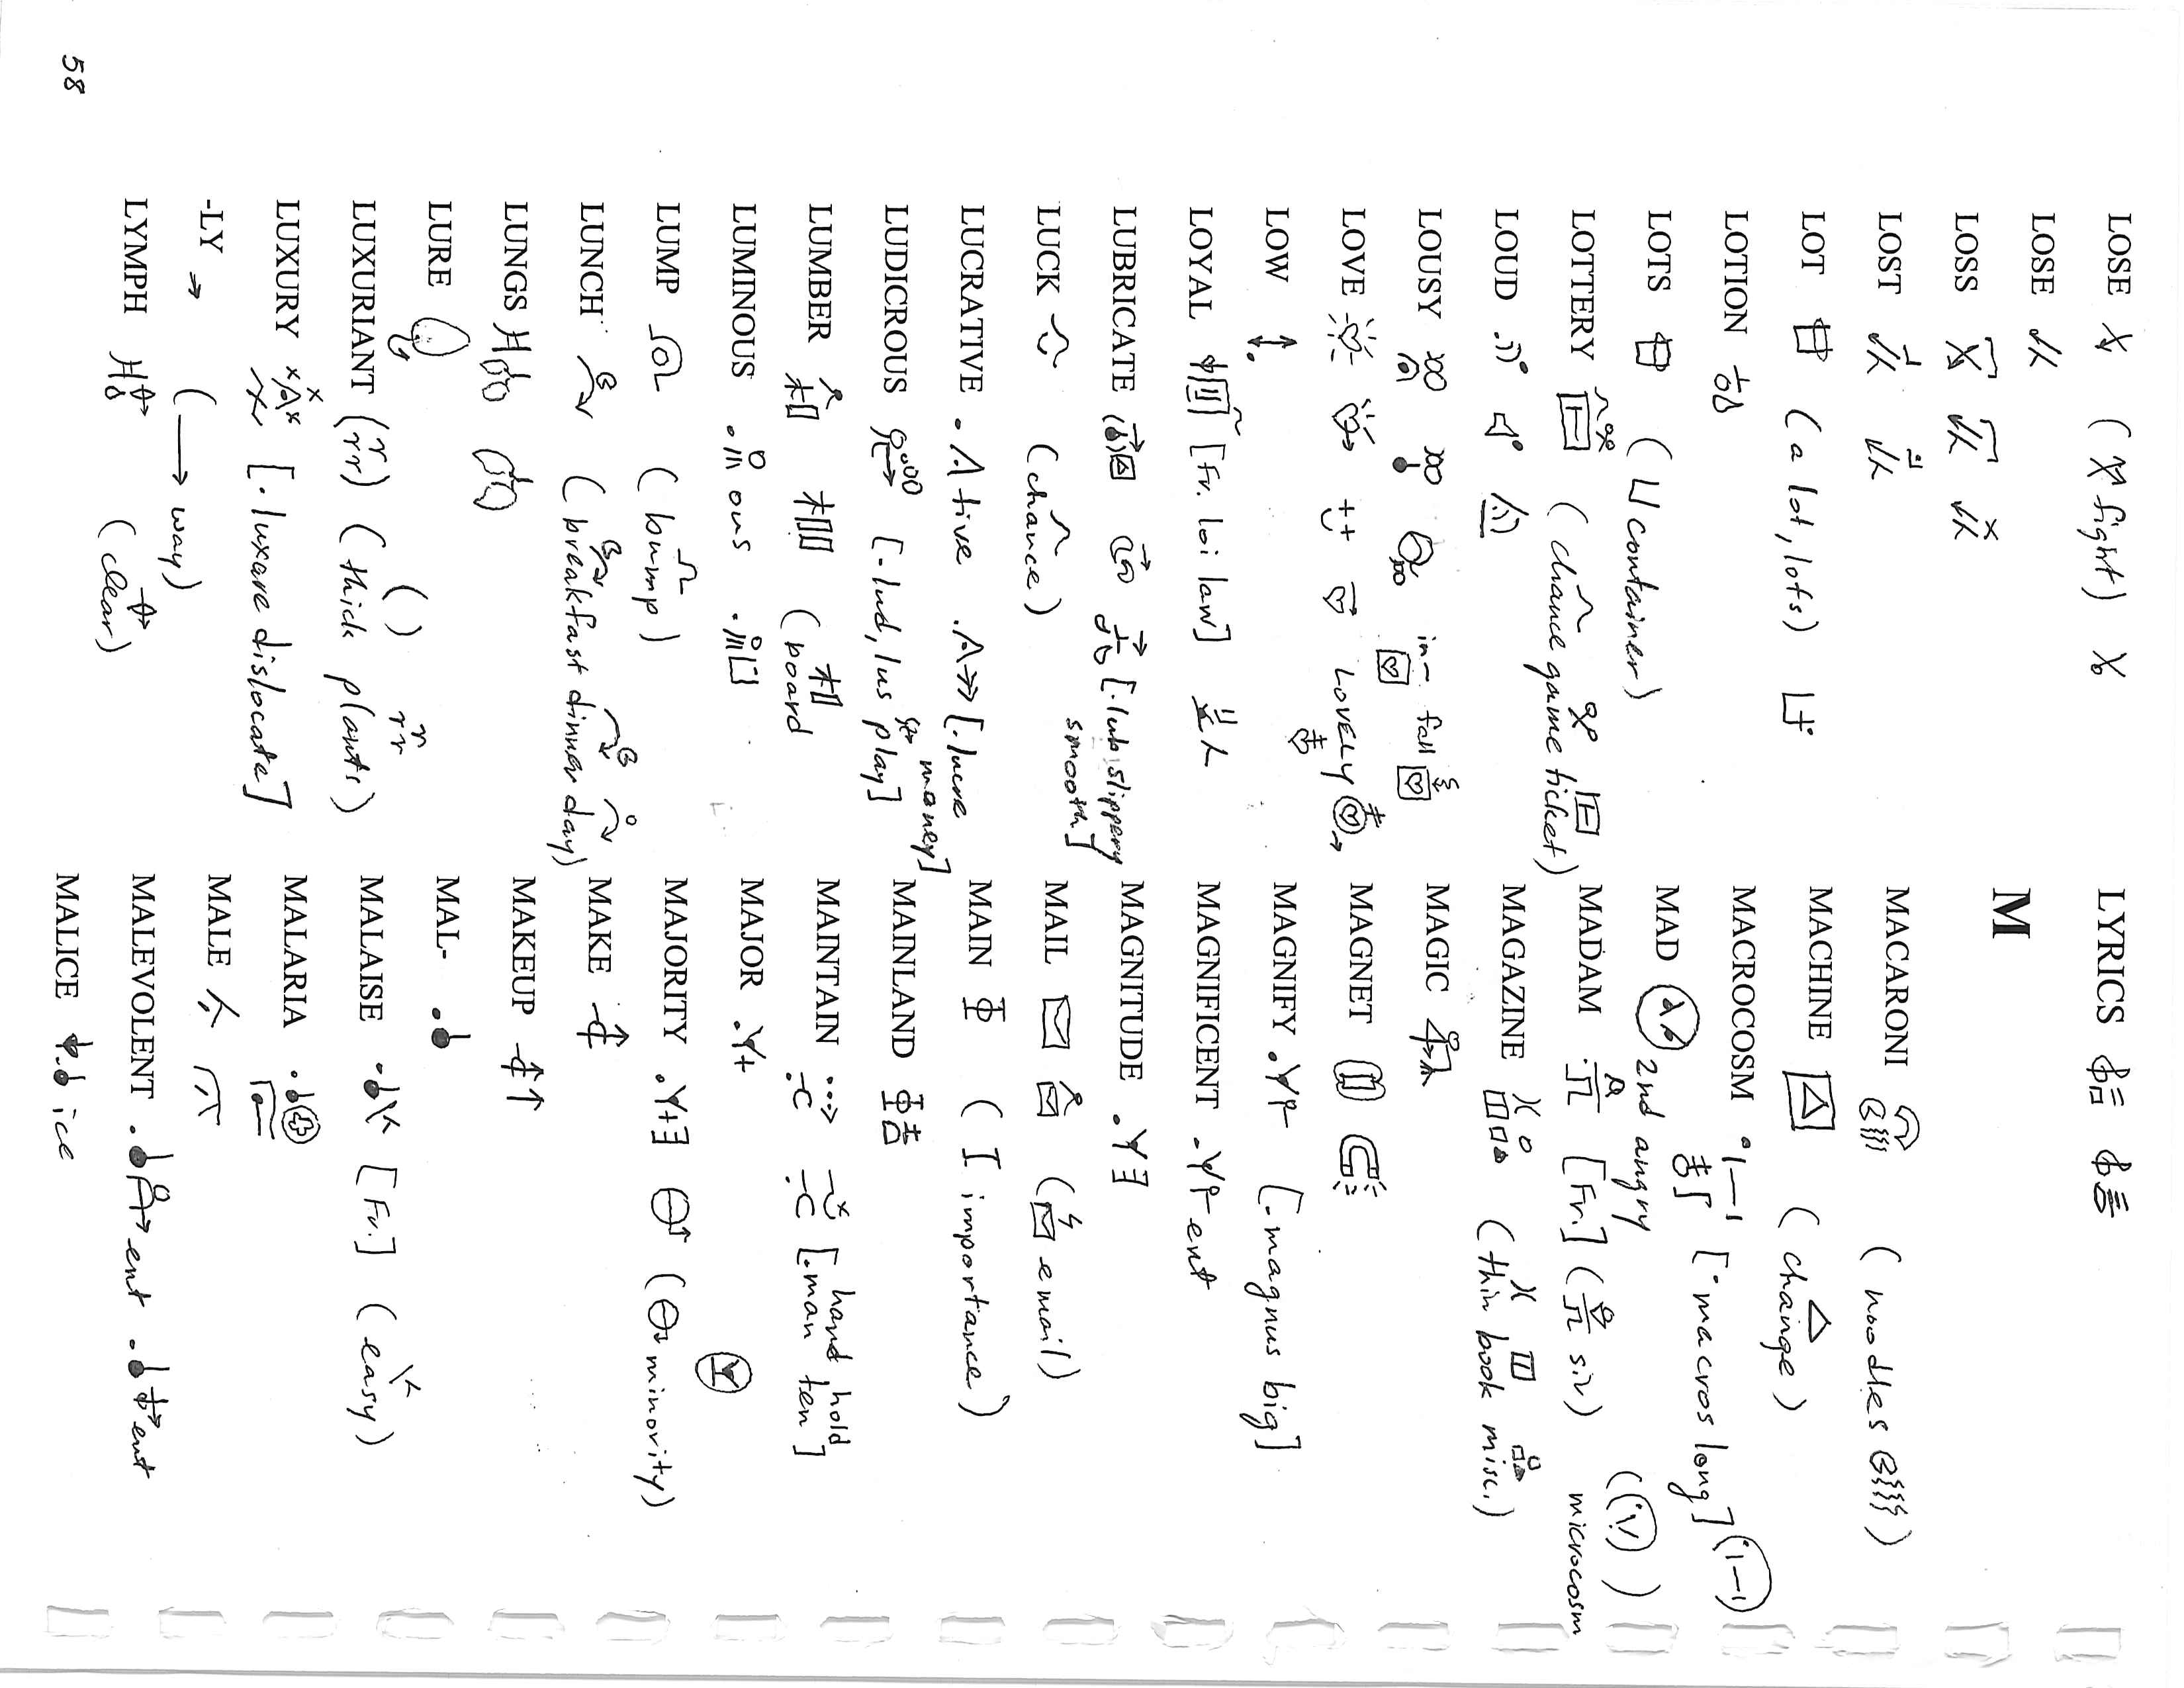 LOSE ( fight)
LOSE
LOSS
LOST
LOT (a lot, lots)
LOTION
LOTS (⊔ container)
LOTTERY (chance game ticket)
LOUD
LOUSY
LOVE in- fall LOVELY
LOW
LOYAL [Fr. loi law]
LUBRICATE [.lub slippery
smooth]
LUCK (chance)
LUCRATIVE .Λ tive [.lucre
money]
LUDICROUS [.lud, lus play]
LUMBER (board
LUMINOUS ous
LUMP (bump)
LUNCH (breakfast dinner day)
LUNGS
LURE
LUXURIANT (thick plants)
LUXURY [.luxare dislocate]
-LY → (→ way)
LYMPH (clear)
LYRICS
M
MACARONI (noodles)
MACHINE (change)
MACROCOSM [.macros long]
microcosm
MAD 2nd angry
MADAM [Fr.] (sir)
MAGAZINE (thin book misc.)
MAGIC
MAGNET
MAGNIFY [.magnus big]
MAGNIFICENT ent
MAGNITUDE
MAIL (email)
MAIN (I importance)
MAINLAND
MAINTAIN [.man ten]
hand hold
MAJOR .Y+
MAJORITY .Y+∃ (minority)
MAKE
MAKEUP
MAL-
MALAISE [Fr.] (easy)
MALARIA
MALE
MALEVOLENT ent ent
MALICE ice
58